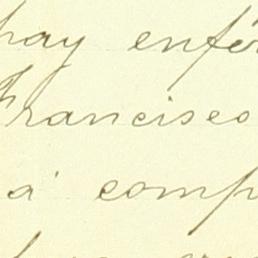 hay enfer
Francisco
á comp